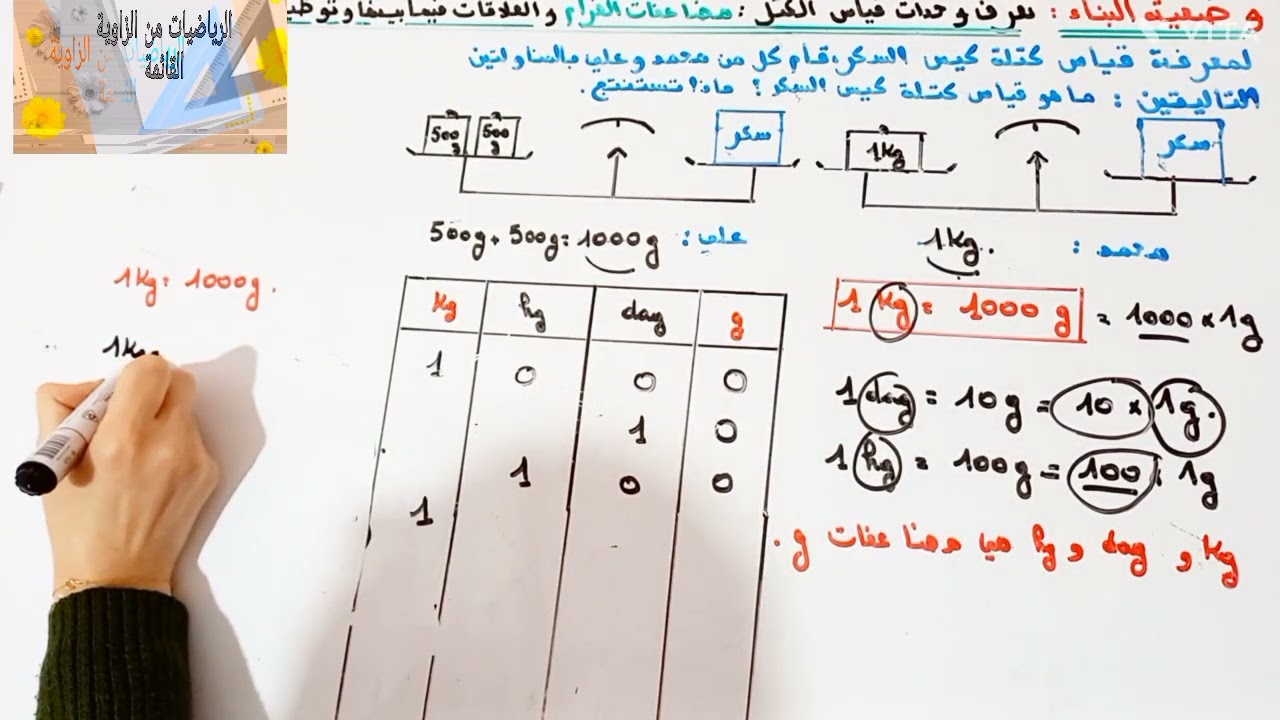 وضعية البناء : تعرف وحدات قياس الكتل : مضاعفات الغرام و العلاقات فيما بينها و توظيـ
لمعرفة قياس كتلة كيس السكر، قام كل من محمد وعلي بالمناولتين
التاليتين : ما هو قياس كتلة كيس السكر ؟ ماذا تستنتج .
الرياضيات من الزاوية
القائمة
1Kg
سكر
500 g
500 g
سكر
محمد :
1Kg.
علي :
500g + 500g = 1000g
1 Kg = 1000 g = 1000 × 1g
1 dag = 10g = 10 × 1g.
1 hg = 100g = 100 : 1g
Kg و dag و hg هيا مضاعفات g .
Kg hg dag g
1 0 0 0
1 0
1 0 0
1
1Kg = 1000g .
1Kg